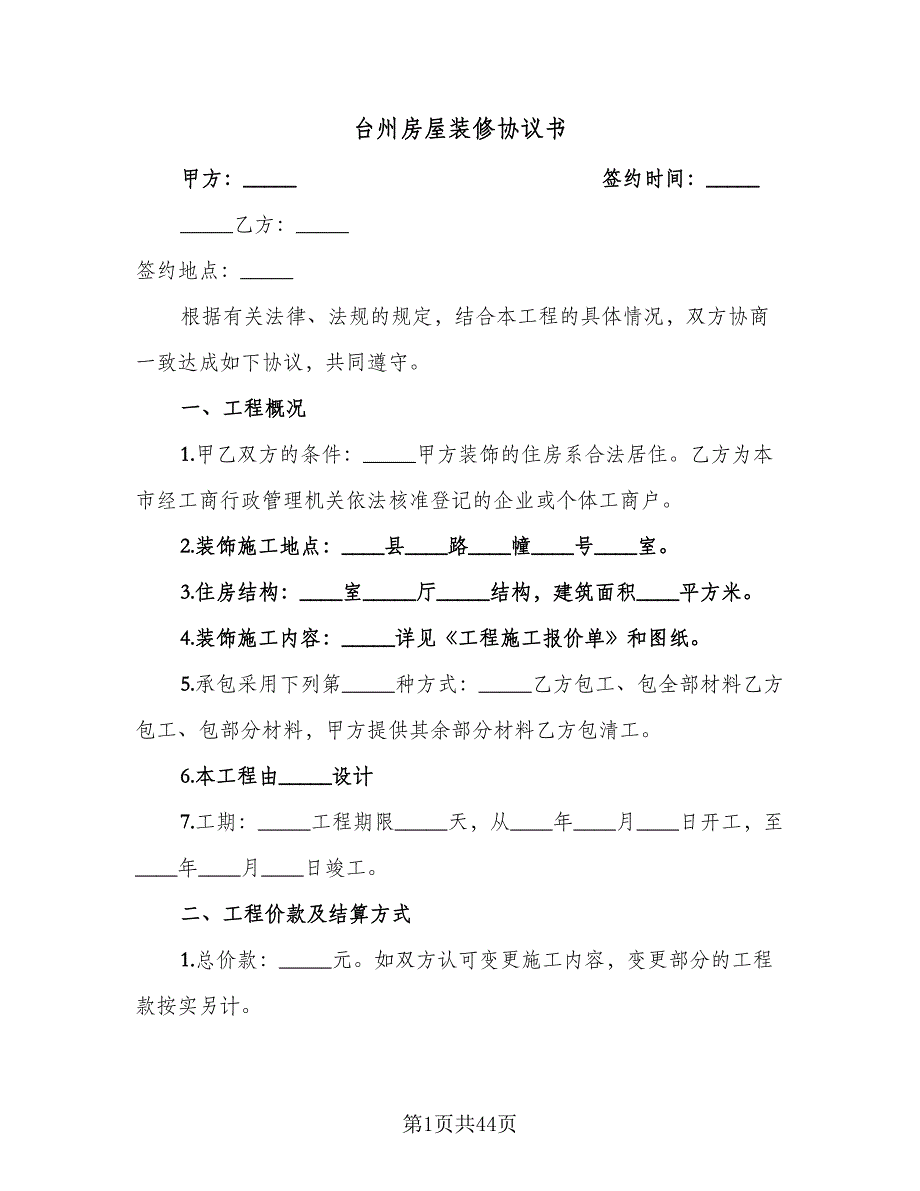 台州房屋装修协议书
甲方：_____ 签约时间：_____
_____乙方：_____
签约地点：_____
根据有关法律、法规的规定，结合本工程的具体情况，双方协商
一致达成如下协议，共同遵守。
一、工程概况
1.甲乙双方的条件：_____甲方装饰的住房系合法居住。乙方为本
市经工商行政管理机关依法核准登记的企业或个体工商户。
2.装饰施工地点：____县____路____幢____号____室。
3.住房结构：____室_____厅_____结构，建筑面积____平方米。
4.装饰施工内容：_____详见《工程施工报价单》和图纸。
5.承包采用下列第_____种方式：_____乙方包工、包全部材料乙方
包工、包部分材料，甲方提供其余部分材料乙方包清工。
6.本工程由_____设计
7.工期：_____工程期限_____天，从____年____月____日开工，至
____年____月____日竣工。
二、工程价款及结算方式
1.总价款：_____元。如双方认可变更施工内容，变更部分的工程
款按实另计。
第1页共44页